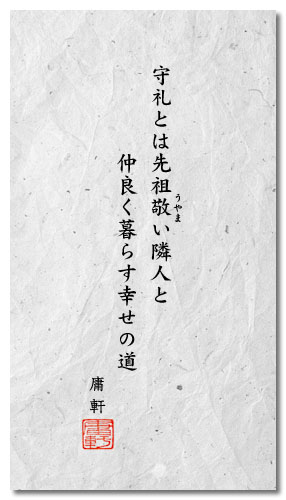 守礼とは先祖敬い隣人と
うやま
仲良く暮らす幸せの道
庸軒
庸軒